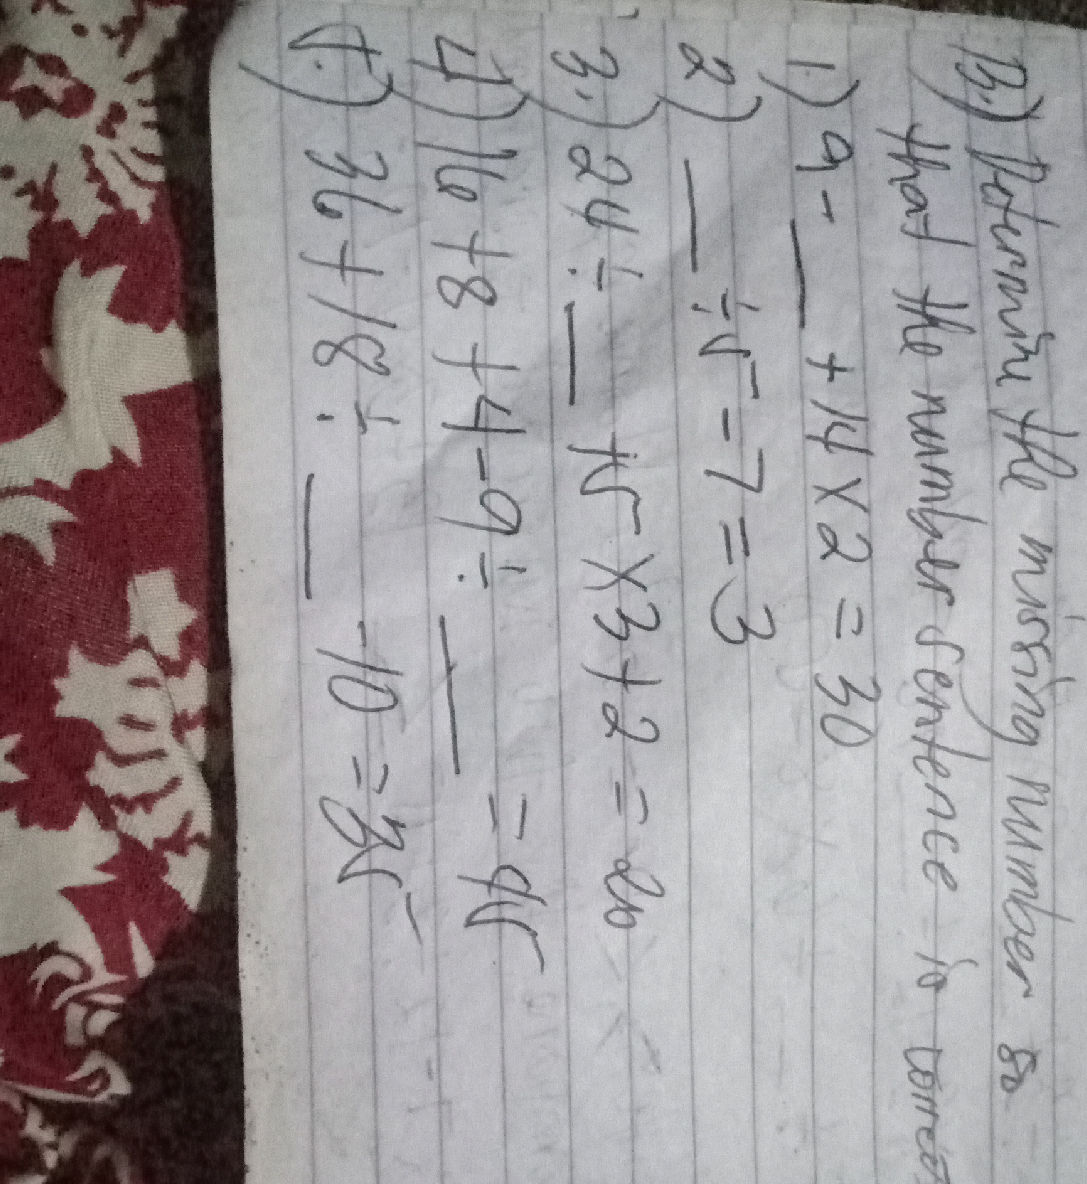 B.) Determine the missing number so
that the number sentence is correct
1.) 9 - __ + 14 × 2 = 30
2) __ ÷ 5 - 7 = 3
3.) 24 ÷ __ + 5 × 3 + 2 = 20
4) 16 + 8 + 4 - 9 ÷ __ = 45
5.) 36 + 18 ÷ __ - 10 = 35